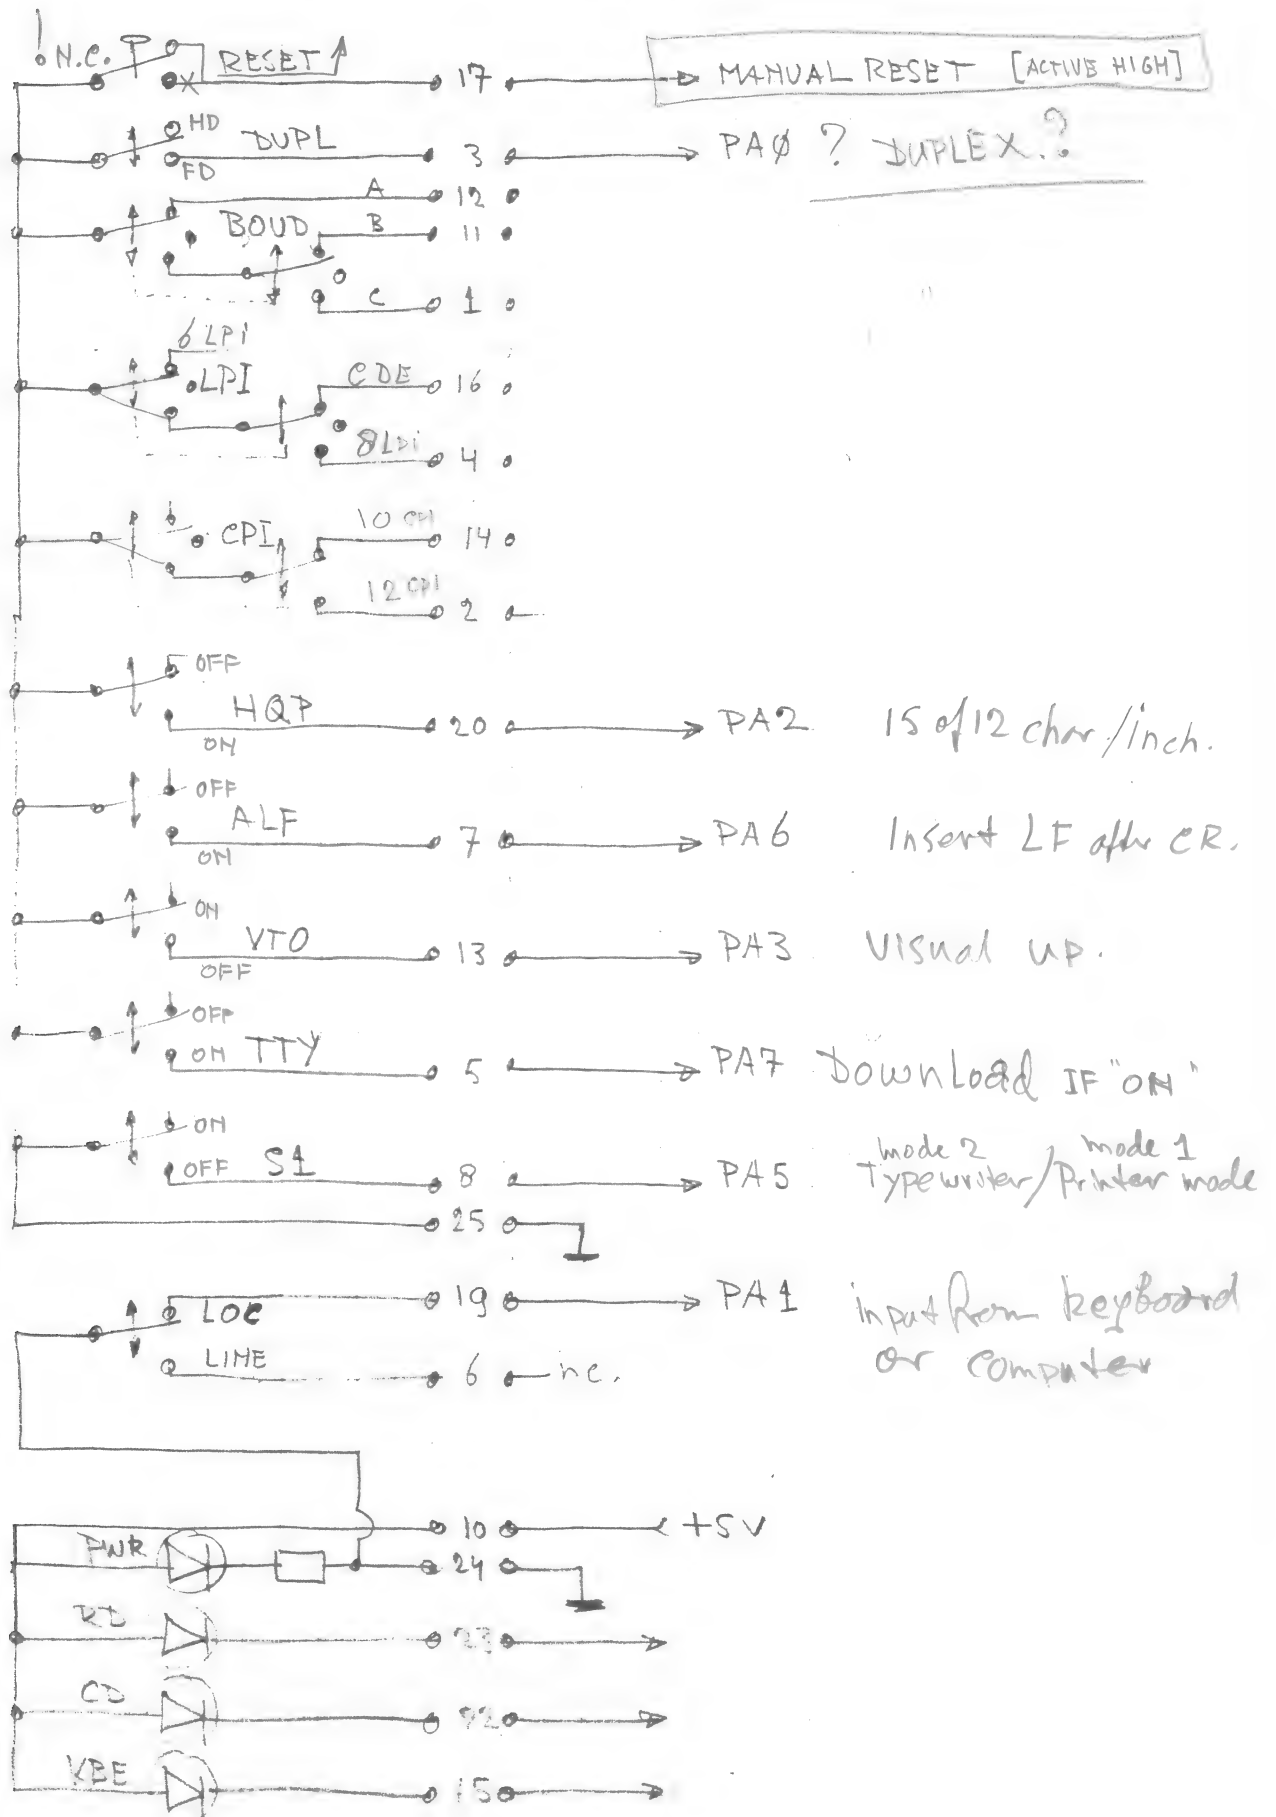 ! N.C. RESET 17 MANUAL RESET [ACTIVE HIGH]
HD
DUPL 3 PAØ ? DUPLEX.?
FD
A 12
BOUD B 11
C 1
6 LPi
LPI CDE 16
8 LPi 4
CPI 10 CPI 14
12 CPI 2
OFF
HQP 20 PA2 15 of 12 char/inch.
ON
OFF
ALF 7 PA6 Insert LF after CR.
ON
ON
VTO 13 PA3 Visual up.
OFF
OFF
ON TTY 5 PA7 Download IF "ON"
ON mode 2 mode 1
OFF S1 8 PA5 Typewriter/Printer mode
25
LOC 19 PA1 input from keyboard
LINE 6 nc. or computer
10 +5V
PWR 24
RD 23
CD 22
KBE 15